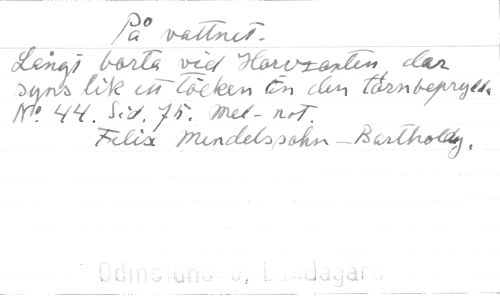 På vattnet.
Långt borta vid Horizonten dar
syns lik ett töcken Ön den tornbeprydda
No. 44. Sid. 75. Mel- not.
Felix Mendelssohn - Bartholdy.
Odinslund, Lundagård